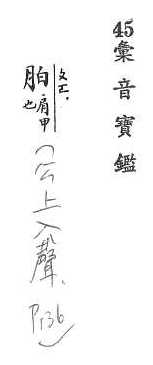 45彙音寶鑑
胉 肩甲也
公上入聲.
P136